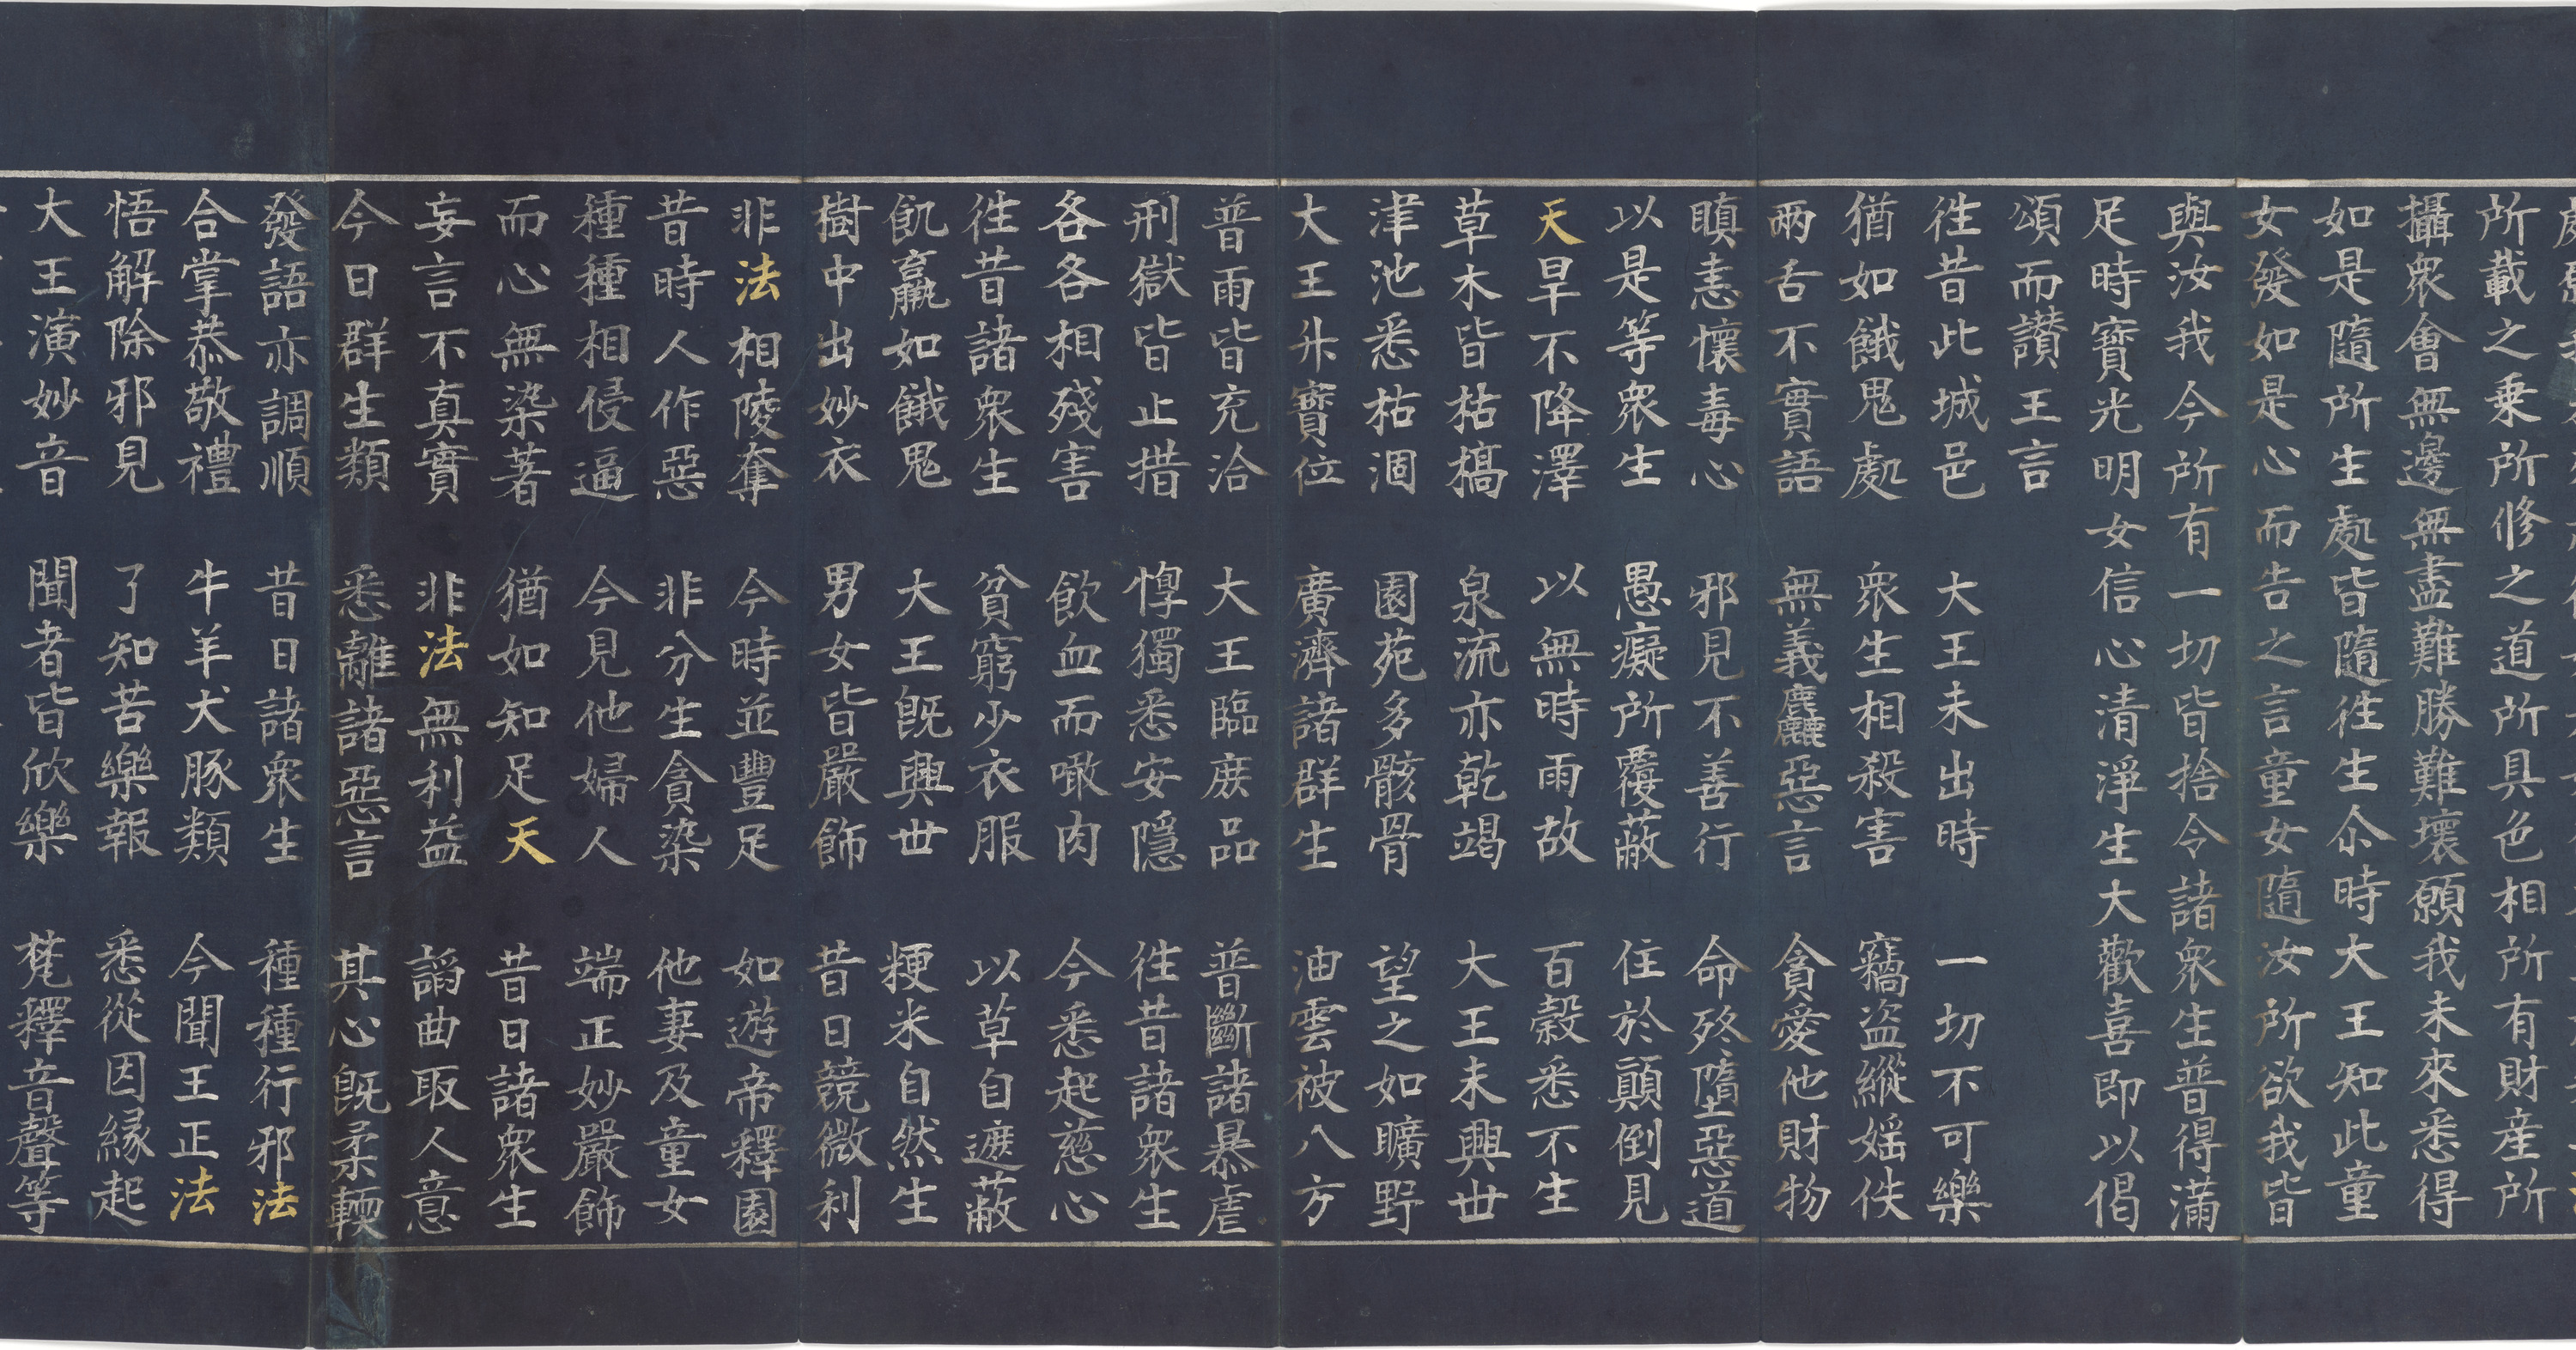 所載之乗所修之道所具色相所有財産所
攝衆會無邊無盡難勝難壞願我未來悉得
如是隨所生處皆隨徃生尒時大王知此童
女發如是心而告之言童女隨汝所欲我皆
與汝我今所有一切皆捨令諸衆生普得滿
足時寳光明女信心清淨生大歡喜即以偈
頌而讃王言
徃昔此城邑　大王未出時　一切不可樂
猶如餓鬼處　衆生相殺害　竊盗縱婬佚
兩舌不實語　無義麁惡言　貪愛他財物
瞋恚懷毒心　邪見不善行　命終墮惡道
以是等衆生　愚癡所覆蔽　住於顛倒見
天旱不降澤　以無時雨故　百穀悉不生
草木皆枯槁　泉流亦乾竭　大王未興世
津池悉枯涸　園苑多骸骨　望之如曠野
大王升寳位　廣濟諸群生　油雲被八方
普雨皆充洽　大王臨庶品　普斷諸暴虐
刑獄皆止措　惸獨悉安隱　徃昔諸衆生
各各相殘害　飲血而噉肉　今悉起慈心
徃昔諸衆生　貧窮少衣服　以草自遮蔽
飢羸如餓鬼　大王旣興世　粳米自然生
樹中出妙衣　男女皆嚴飾　昔日競微利
非法相陵奪　今時並豐足　如遊帝釋園
昔時人作惡　非分生貪染　他妻及童女
種種相侵逼　今見他婦人　端正妙嚴飾
而心無染著　猶如知足天　昔日諸衆生
妄言不真實　非法無利益　謟曲取人意
今日群生類　悉離諸惡言　其心旣柔輭
發語亦調順　昔日諸衆生　種種行邪法
合掌恭敬禮　牛羊犬豚類　今聞王正法
悟解除邪見　了知苦樂報　悉從因縁起
大王演妙音　聞者皆欣樂　梵釋音聲等